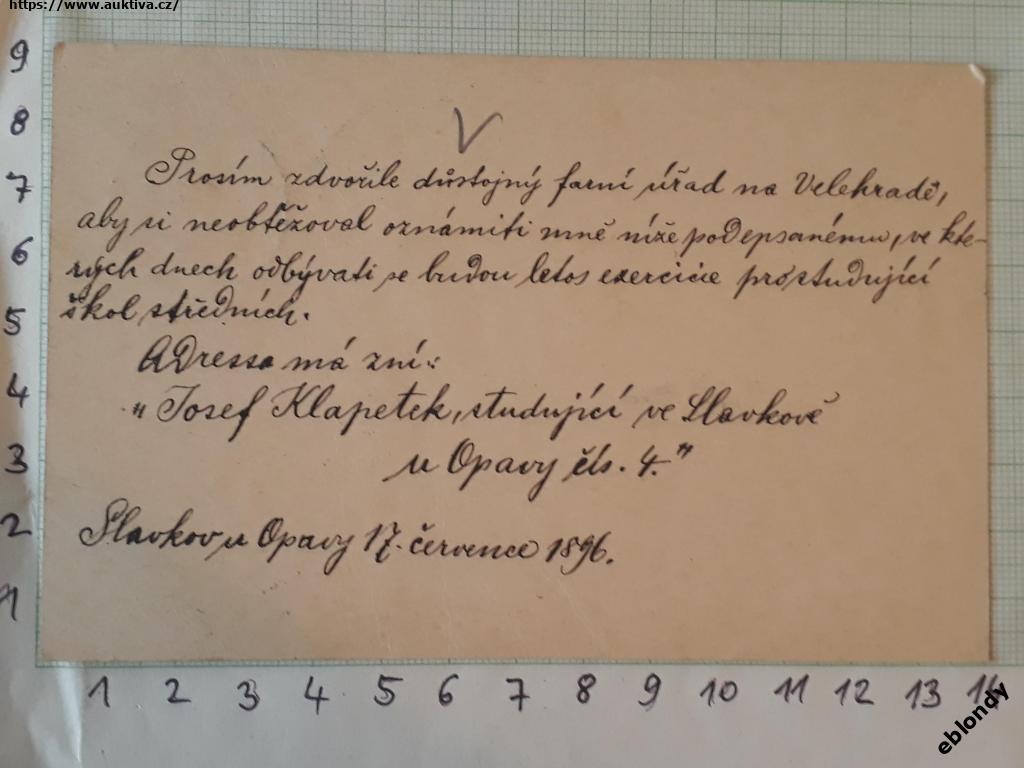 https://www.auktiva.cz/
9
8
7
6
5
4
3
2
1
V
Prosím zdvořile důstojný farní úřad na Velehradě,
aby si neobtěžoval oznámiti mně níže podepsanému, ve kte-
rých dnech odbývati se budou letos exercicie pro studující
škol středních.
Adressa má zní:
"Josef Klapetek, studující ve Slavkově
u Opavy čís. 4."
Slavkov u Opavy 17. července 1896.
1 2 3 4 5 6 7 8 9 10 11 12 13 14
eblondy